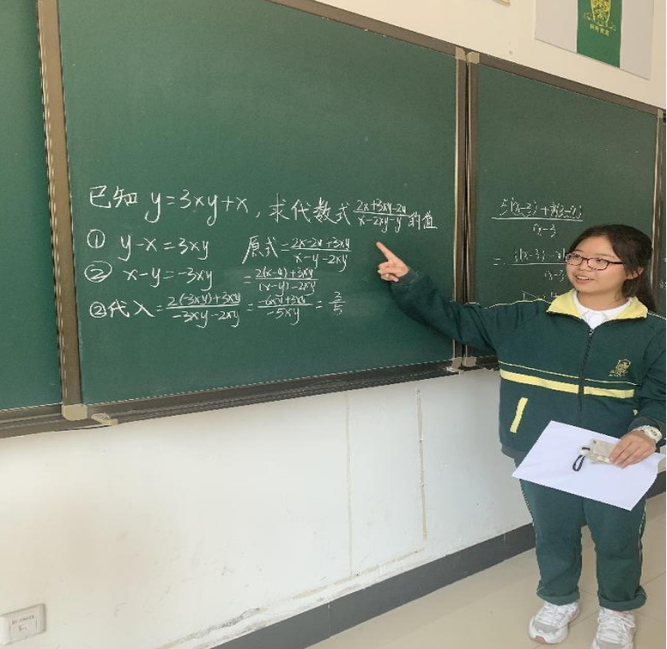 已知 y=3xy+x, 求代数式 (2x+3xy-2y)/(x-2xy-y) 的值
① y-x=3xy 原式=(2x-2y+3xy)/(x-y-2xy)
② x-y=-3xy =(2(x-y)+3xy)/((x-y)-2xy)
②代入=(2(-3xy)+3xy)/(-3xy-2xy)=(-6xy+3xy)/(-5xy)=3/5